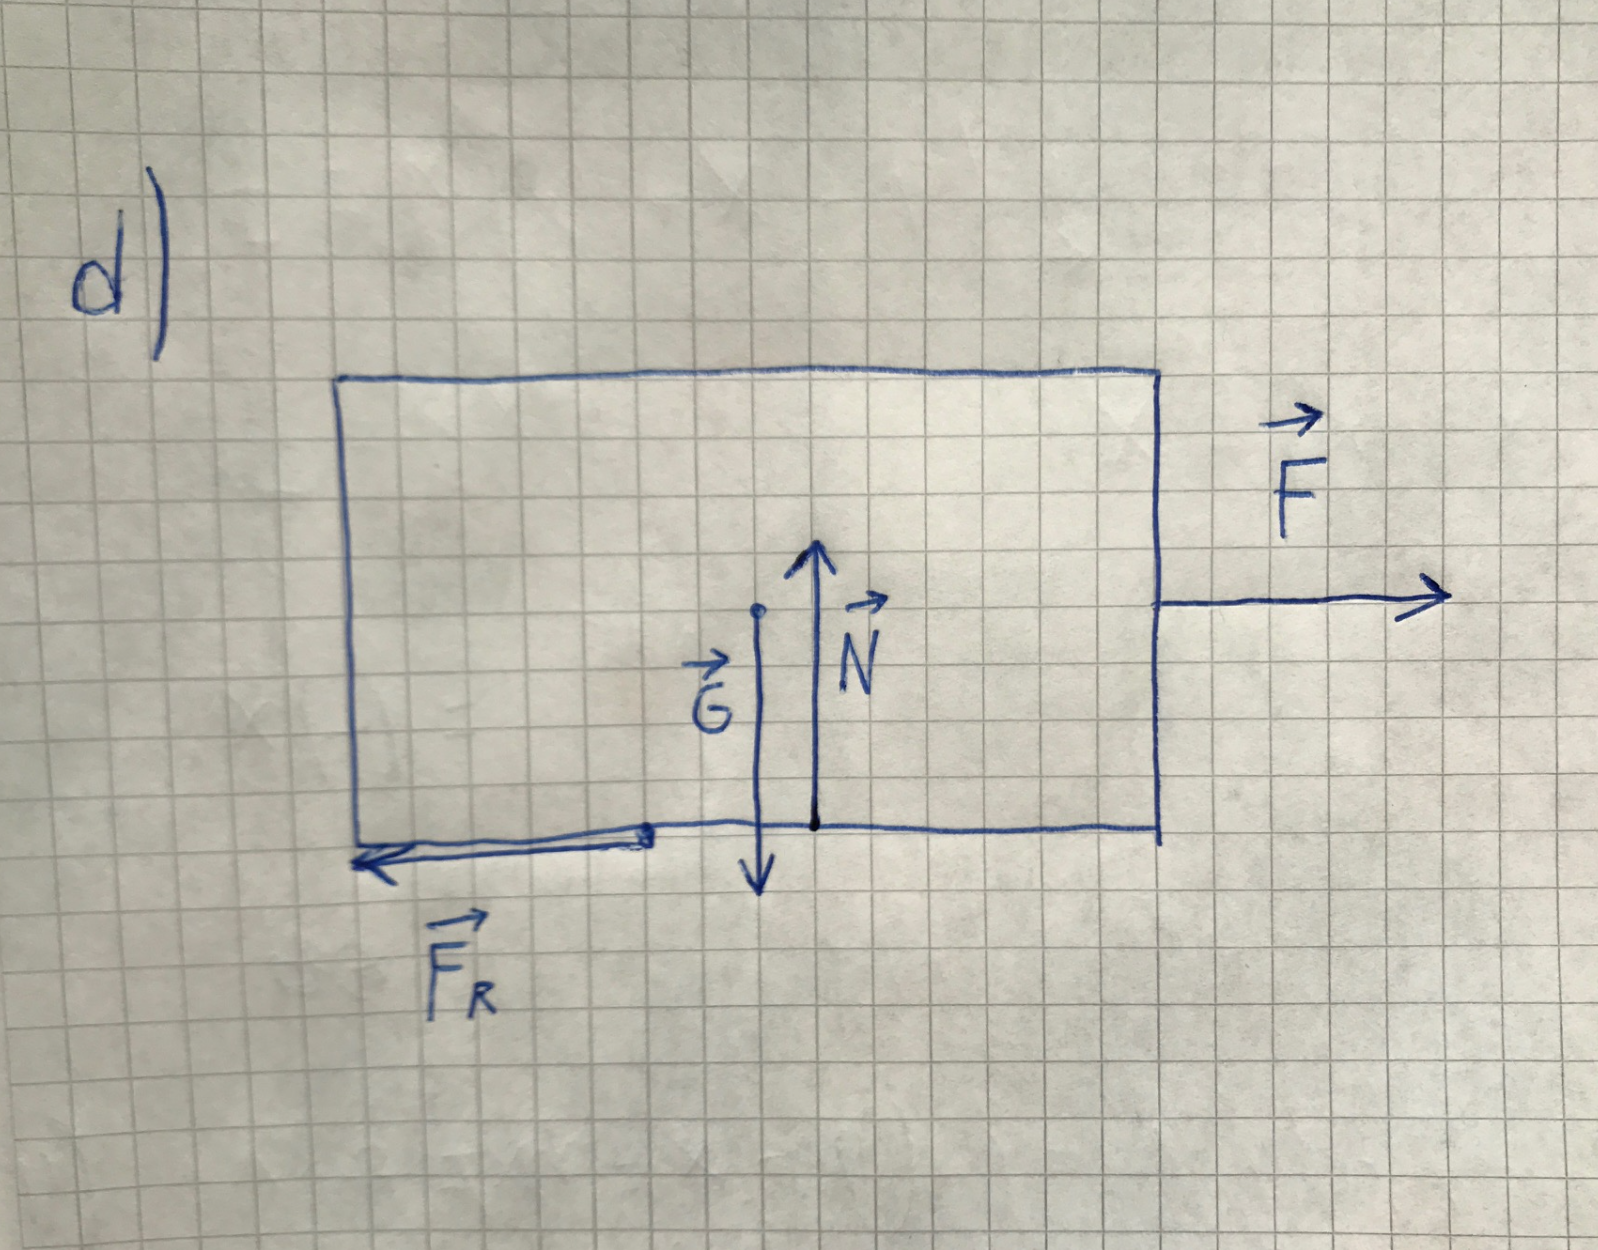 d)
F⃗
N⃗
G⃗
F⃗_R